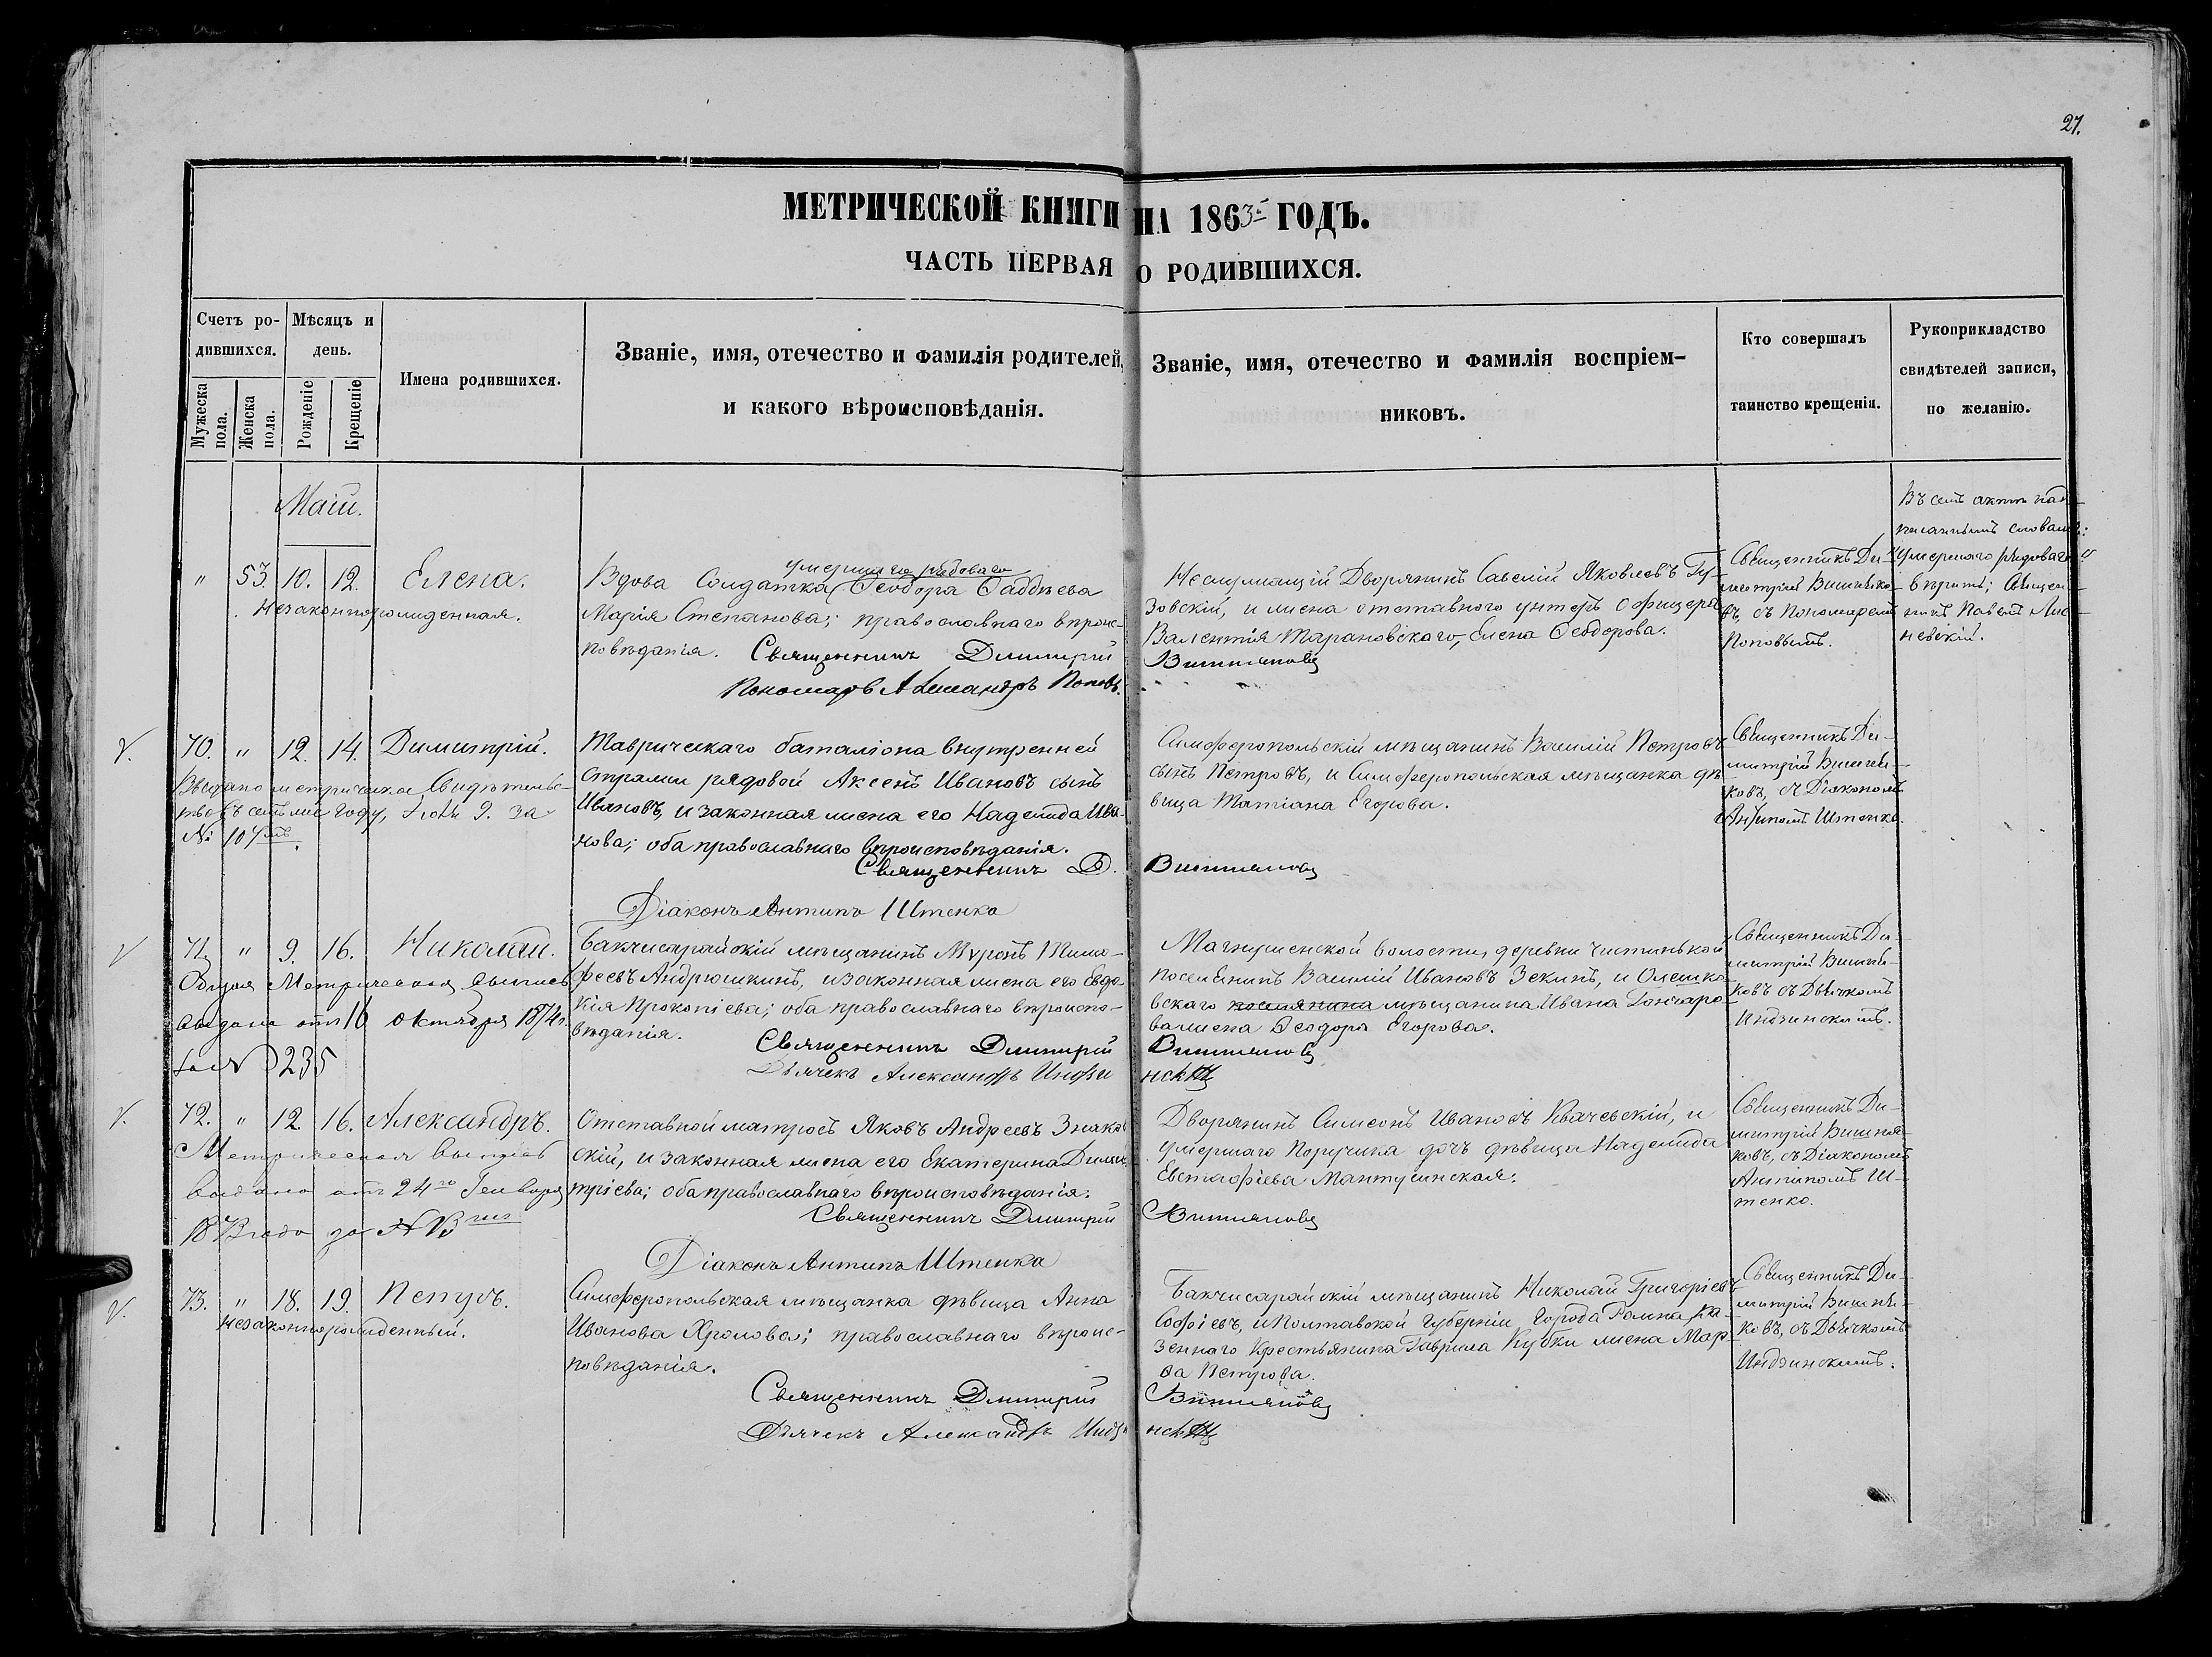 27.
МЕТРИЧЕСКОЙ КНИГИ НА 1863й ГОДЪ.
ЧАСТЬ ПЕРВАЯ О РОДИВШИХСЯ.
Счетъ ро-
дившихся.
Мужеска
пола.
Женска
пола.
Мѣсяцъ и
день.
Рожденіе
Крещеніе
Имена родившихся.
Званіе, имя, отечество и фамилія родителей,
и какого вѣроисповѣданія.
Званіе, имя, отечество и фамилія воспріем-
никовъ.
Кто совершалъ
таинство крещенія.
Рукоприкладство
свидѣтелей записи,
по желанію.
Маій.
" 53. 10. 12. Елена.
Незаконнорожденная.
умершаго рядоваго
Вдова Солдатка Ѳеодора Ѳаддѣева
Марія Степанова; православнаго вѣроис-
повѣданія. Священникъ Димитрій
Пономарь Александръ Поповъ.
Неслужащій Дворянинъ Савелій Яковлевъ Гу-
зовскій, и жена отставнаго унтеръ офицера
Валентія Тарановскаго, Елена Ѳеодорова.
Вишняковъ
Священникъ Ди-
митрій Вишняко-
въ, съ Пономаремъ
Поповымъ.
Въ семъ актѣ над-
писаннымъ словамъ:
"умершаго рядоваго"
вѣрить; Священ-
никъ Павелъ
невскій.
70. " 12. 14. Димитрій.
Выдано метрическое Свидѣтельс-
тво въ семъ же году, 9. за
№ 107
Таврическаго баталіона внутренней
стражи рядовой Аксенъ Ивановъ сынъ
Ивановъ, и законная жена его Надежда Ива-
нова; оба православнаго вѣроисповѣданія.
Священникъ Д.
Діаконъ Антипъ Штенко
Симферопольскій мѣщанинъ Василій Петровъ
сынъ Петровъ, и Симферопольская мѣщанка дѣ-
вица Татіана Егорова.
Вишняковъ
Священникъ Ди-
митрій Вишня-
ковъ, съ Діакономъ
Антипомъ Штенко.
71. " 9. 16. Николай.
Метрическая выпись
выдана отъ 16 октября 1874 г.
за № 235
Бакчисарайскій мѣщанинъ Миронъ Тимо-
феевъ Андрюшкинъ, и законная жена его Евдо-
кія Прокопіева; оба православнаго вѣроиспо-
вѣданія.
Священникъ Димитрій
Дьячекъ Александръ Индзи
волости, деревни
поселенинъ Василій Ивановъ Зекинъ, и Олешко-
вскаго поселянина мѣщанина Ивана Гончаро-
ва жена Ѳеодора Егорова.
Вишняковъ
нскій
Священникъ Ди-
митрій Вишня-
ковъ съ Дьячкомъ
Индзинскимъ.
72. " 12. 16. Александръ.
Метрическая выпись
выдана отъ 24го Генваря
1873 года за № 13
Отставной матросъ Яковъ Андреевъ Знако-
скій, и законная жена его Екатерина Дими-
тріева; оба православнаго вѣроисповѣданія.
Священникъ Димитрій
Діаконъ Антипъ Штенко
Дворянинъ Симеонъ Ивановъ Квачевскій, и
умершаго Поручика дочь дѣвица Надежда
Евстафіева Мантушинская.
Вишняковъ
Священникъ Ди-
митрій Вишня-
ковъ, съ Діакономъ
Антипомъ Ш-
тенко.
73. " 18. 19. Петръ.
Незаконнорожденный.
Симферопольская мѣщанка дѣвица Анна
Иванова Хромова; православнаго вѣроис-
повѣданія.
Священникъ Димитрій
Дьячекъ Александръ Индзи
Бакчисарайскій мѣщанинъ Николай Григоріевъ
Софіевъ, и Полтавской Губерніи города Ромна ка-
зеннаго крестьянина Гаврила Кубки жена Мар-
ѳа Петрова.
Вишняковъ
нскій
Священникъ Ди-
митрій Вишня-
ковъ, съ Дьячкомъ
Индзинскимъ.